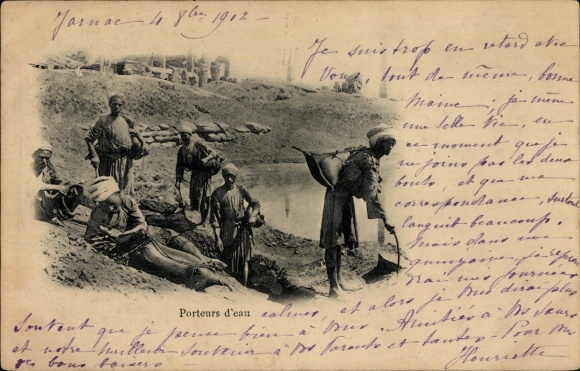 Jarnac 4 8bre 1902 -
Je suis trop en retard avec
Vous, tout de même, bonne
Marie; je mène
une telle vie, en
ce moment que je
ne joins pas les deux
bouts, et que ma
correspondance, surtout
languit beaucoup.
Mais dans une
quinzaine, je repren
drai mes journées
Porteurs d'eau
calmes, et alors je vous dirai plus
souvent que je pense bien à Vous. Amitiés à vos sœurs
et notre meilleur souvenir à vos Parents et tantes - Pour vous
des bons baisers -
Henriette